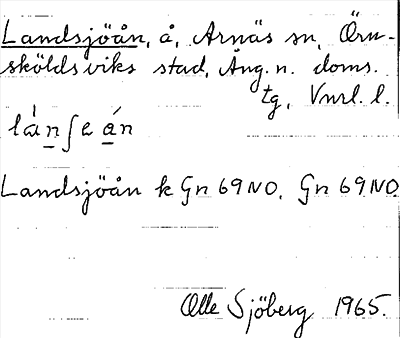 Landsjöån, å, Arnäs sn, Örn-
sköldsviks stad, Ång. n. doms.
tg, Vnrl. l.
lánʃeán
Landsjöån k Gn 69 NO, Gn 69 NO.
Olle Sjöberg 1965.